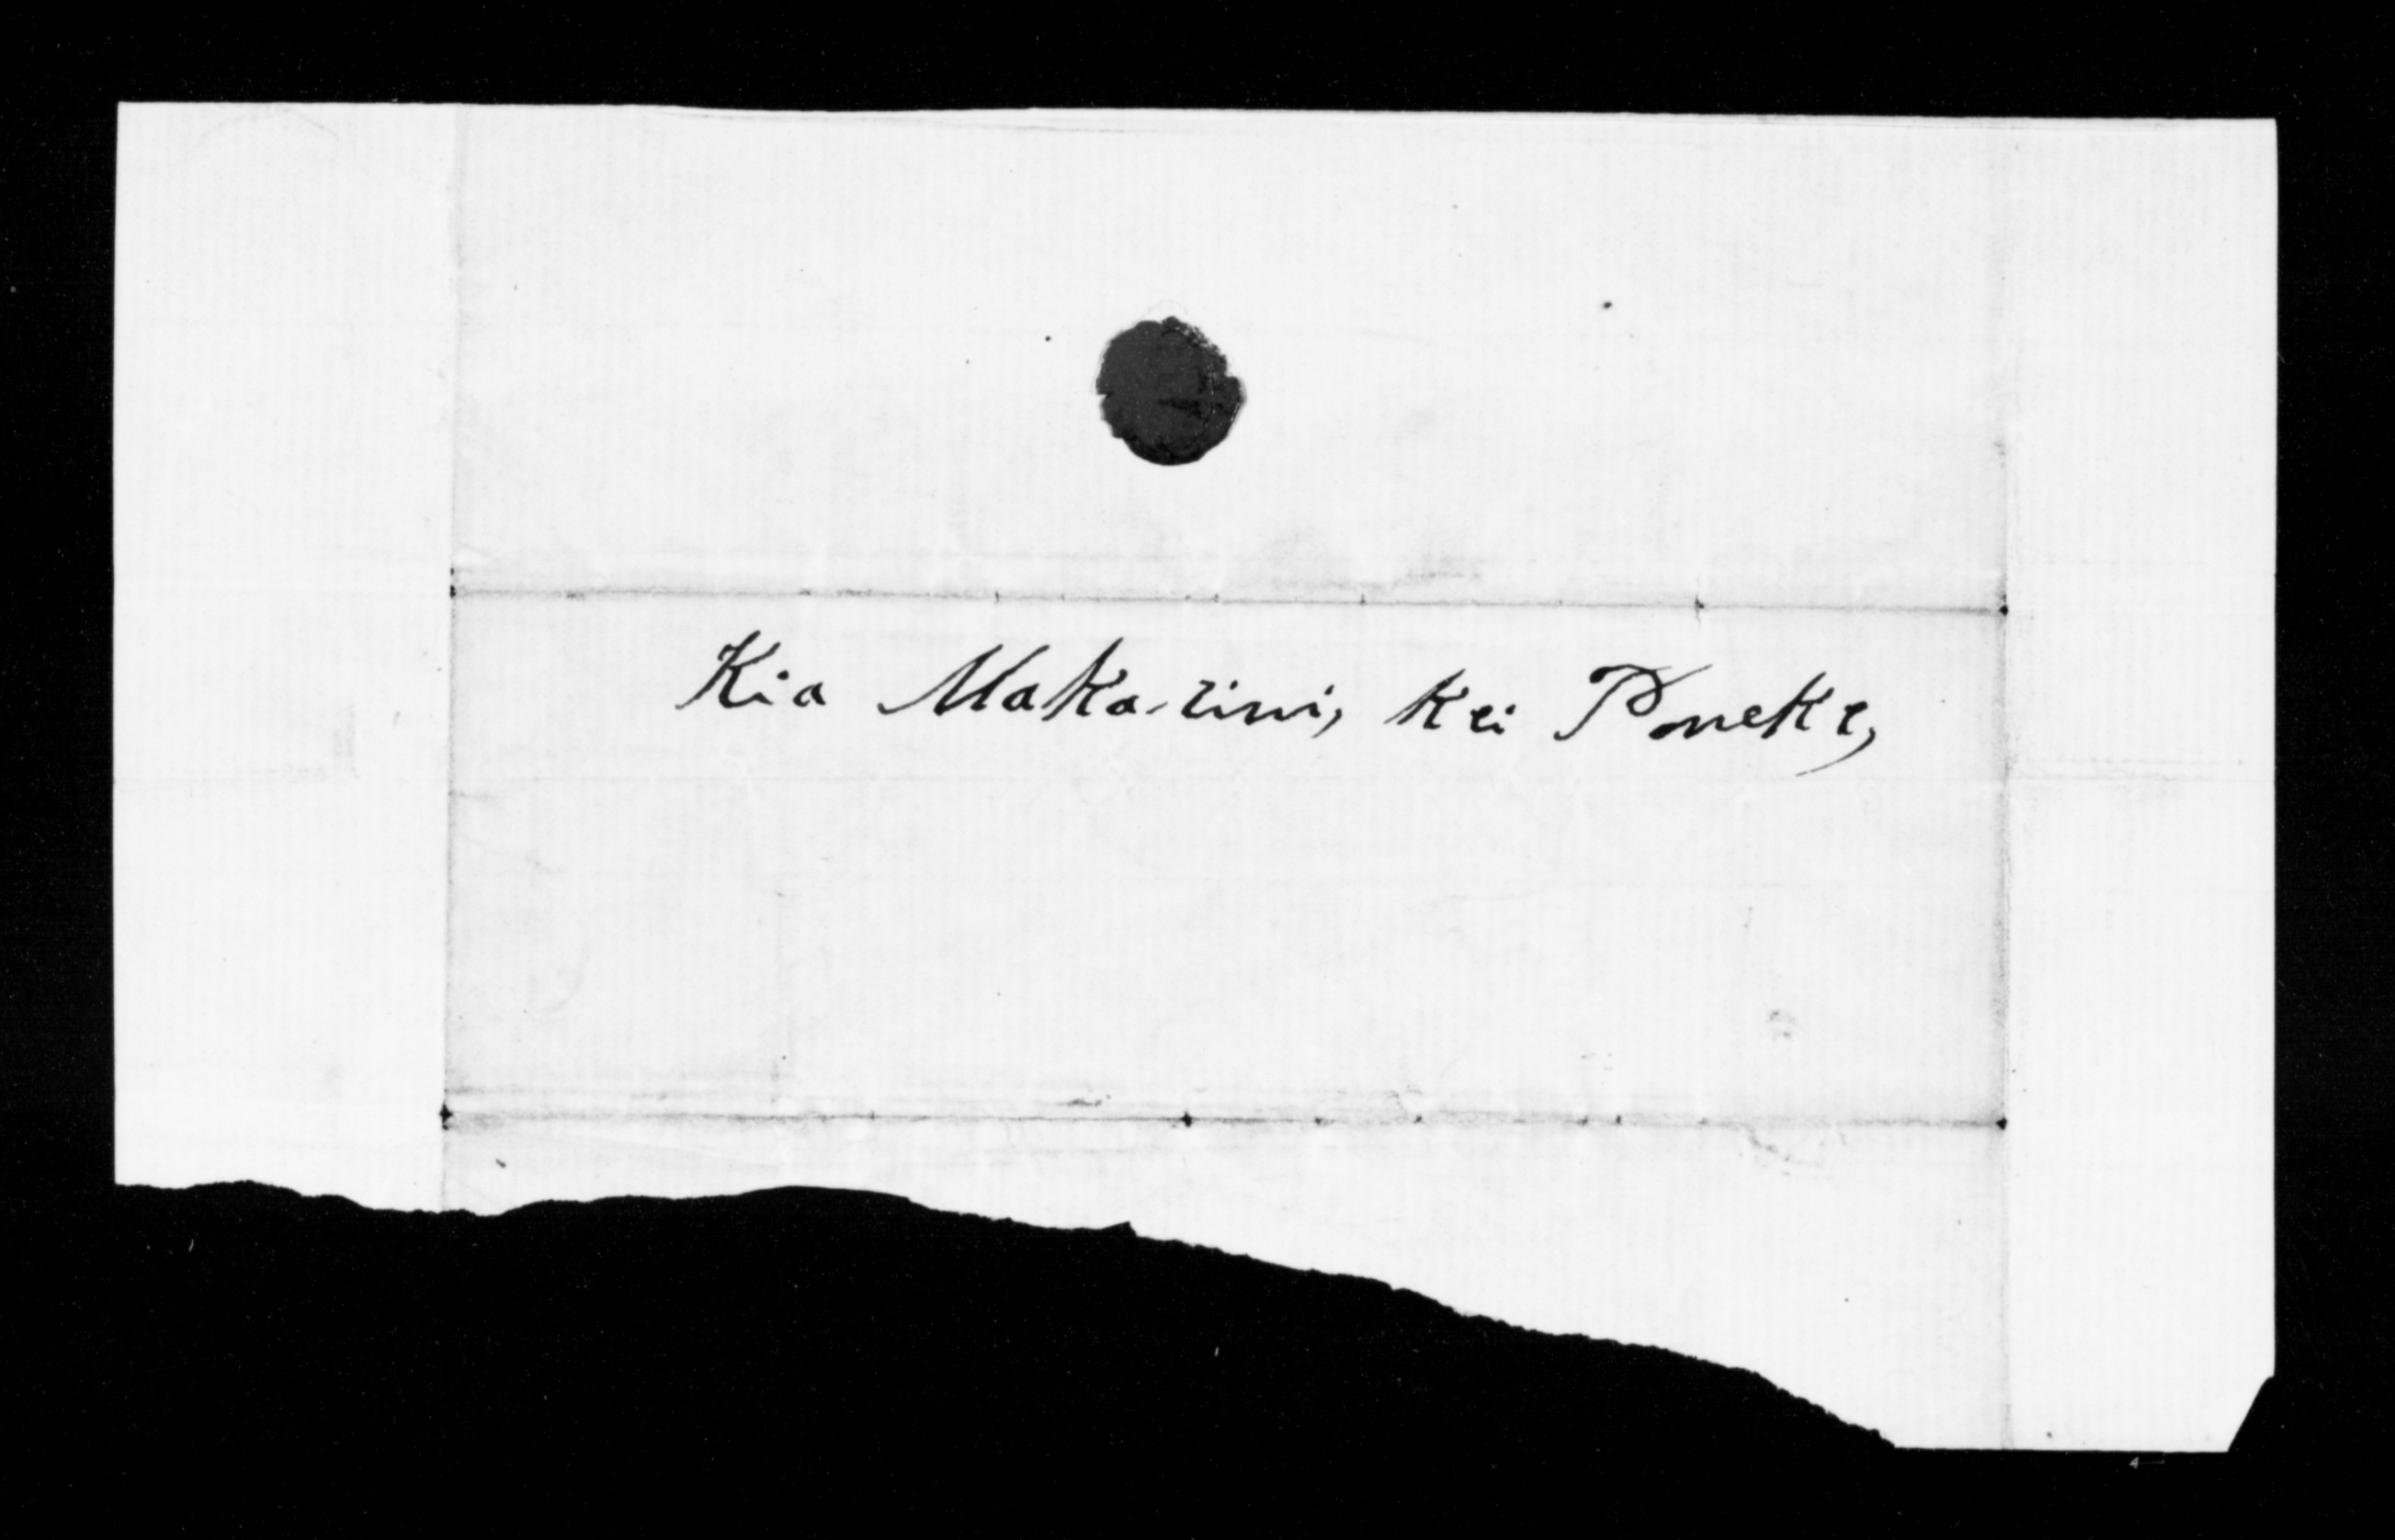 Kia Maka-rini, Kei Poneke,